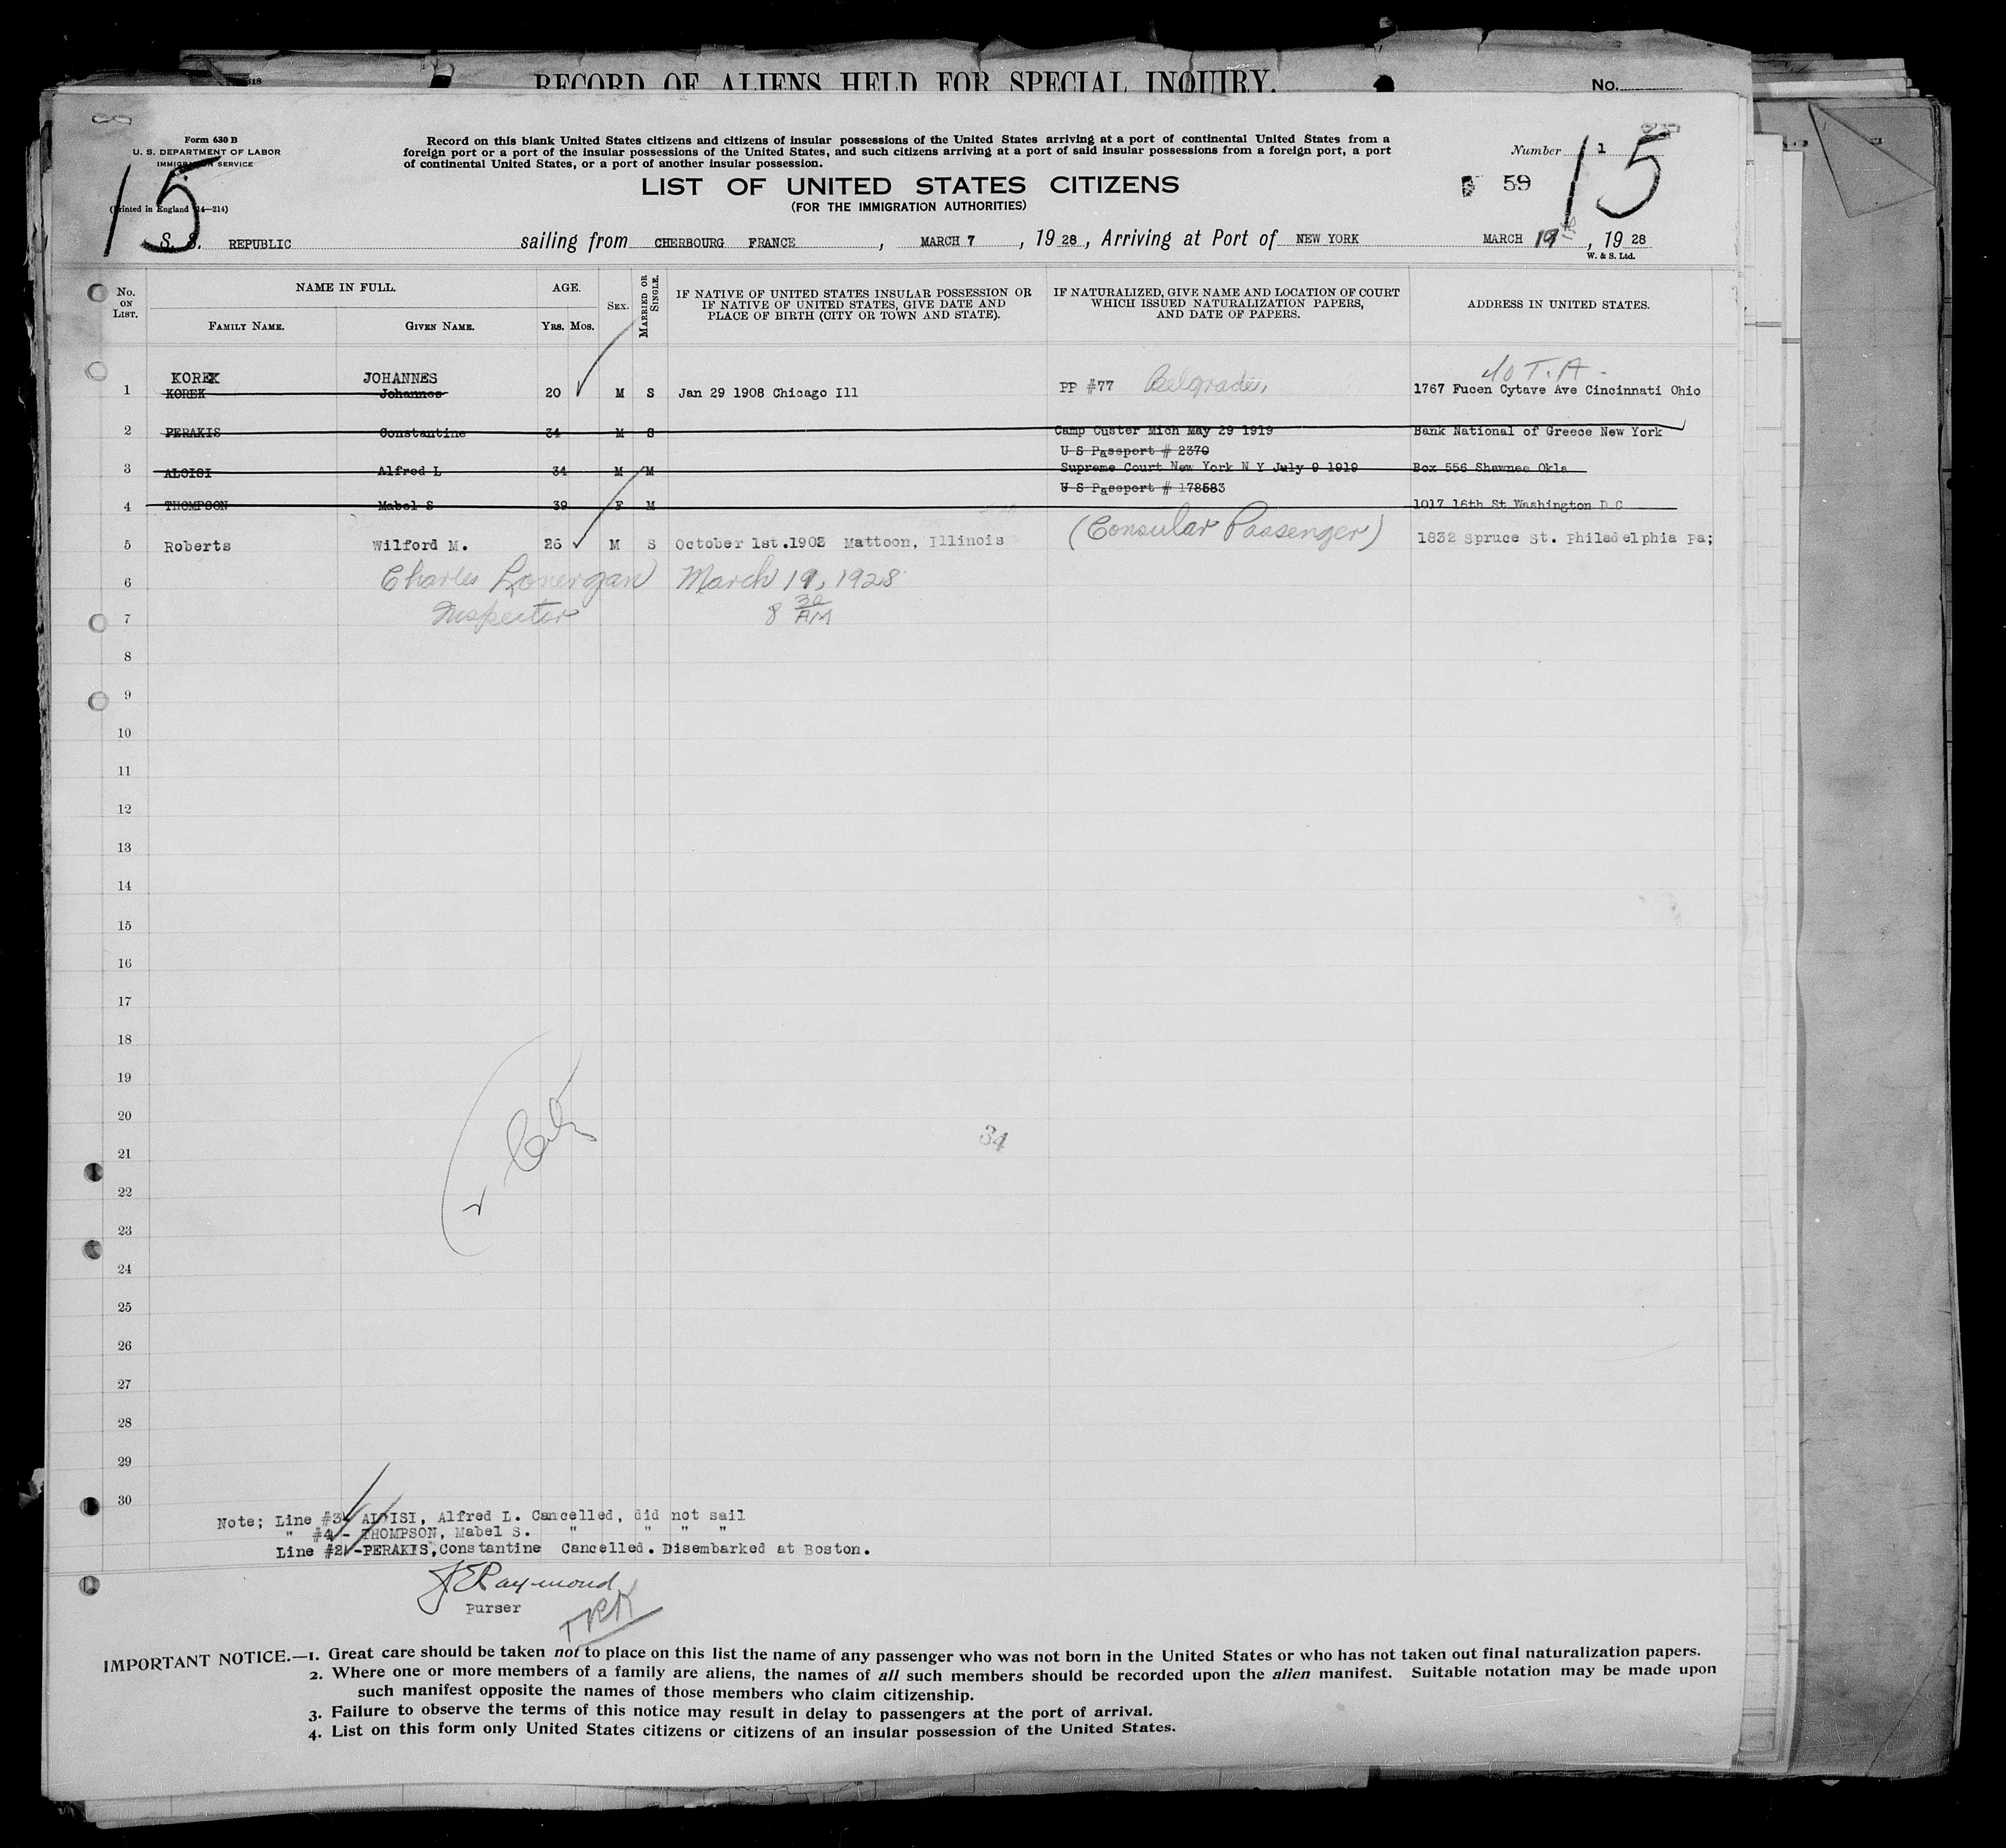 RECORD OF ALIENS HELD FOR SPECIAL INQUIRY.
No.
Form 630 B
U. S. DEPARTMENT OF LABOR
IMMIGRATION SERVICE
(Printed in England 14—214)
15
Record on this blank United States citizens and citizens of insular possessions of the United States arriving at a port of continental United States from a
foreign port or a port of the insular possessions of the United States, and such citizens arriving at a port of said insular possessions from a foreign port, a port
of continental United States, or a port of another insular possession.
LIST OF UNITED STATES CITIZENS
(FOR THE IMMIGRATION AUTHORITIES)
Number 1
59
15
S. S. REPUBLIC sailing from CHERBOURG FRANCE, MARCH 7, 1928, Arriving at Port of NEW YORK MARCH 19th, 1928
W. & S. Ltd.
No. ON LIST.
NAME IN FULL.
FAMILY NAME. GIVEN NAME.
AGE.
YRS. MOS.
SEX.
MARRIED OR SINGLE.
IF NATIVE OF UNITED STATES INSULAR POSSESSION OR
IF NATIVE OF UNITED STATES, GIVE DATE AND
PLACE OF BIRTH (CITY OR TOWN AND STATE).
IF NATURALIZED, GIVE NAME AND LOCATION OF COURT
WHICH ISSUED NATURALIZATION PAPERS,
AND DATE OF PAPERS.
ADDRESS IN UNITED STATES.
KOREK JOHANNES
1 KOREK Johannes 20 M S Jan 29 1908 Chicago Ill PP #77 Belgrade, 1767 Fucen Cytave Ave Cincinnati Ohio
2 PERAKIS Constantine 34 M S Camp Custer Mich May 29 1919 Bank National of Greece New York
U S Passport # 2370
3 ALOISI Alfred L 34 M M Supreme Court New York N Y July 9 1919 Box 556 Shawnee Okla
U S Passport # 178583
4 THOMPSON Mabel S 39 F M 1017 16th St Washington D C
5 Roberts Wilford M. 26 M S October 1st.1903 Mattoon, Illinois (Consular Passenger) 1832 Spruce St. Philadelphia Pa;
6 Charles Lonergan March 19, 1928
7 Inspector 8 30 AM
8
9
10
11
12
13
14
15
16
17
18
19
20
21
34
22
23
24
25
26
27
28
29
30
Note; Line #3- ALOISI, Alfred L. Cancelled, did not sail
" #4- THOMPSON, Mabel S. " " " "
Line #2-PERAKIS,Constantine Cancelled. Disembarked at Boston.
Raymond
Purser
IMPORTANT NOTICE.—1. Great care should be taken not to place on this list the name of any passenger who was not born in the United States or who has not taken out final naturalization papers.
2. Where one or more members of a family are aliens, the names of all such members should be recorded upon the alien manifest. Suitable notation may be made upon
such manifest opposite the names of those members who claim citizenship.
3. Failure to observe the terms of this notice may result in delay to passengers at the port of arrival.
4. List on this form only United States citizens or citizens of an insular possession of the United States.